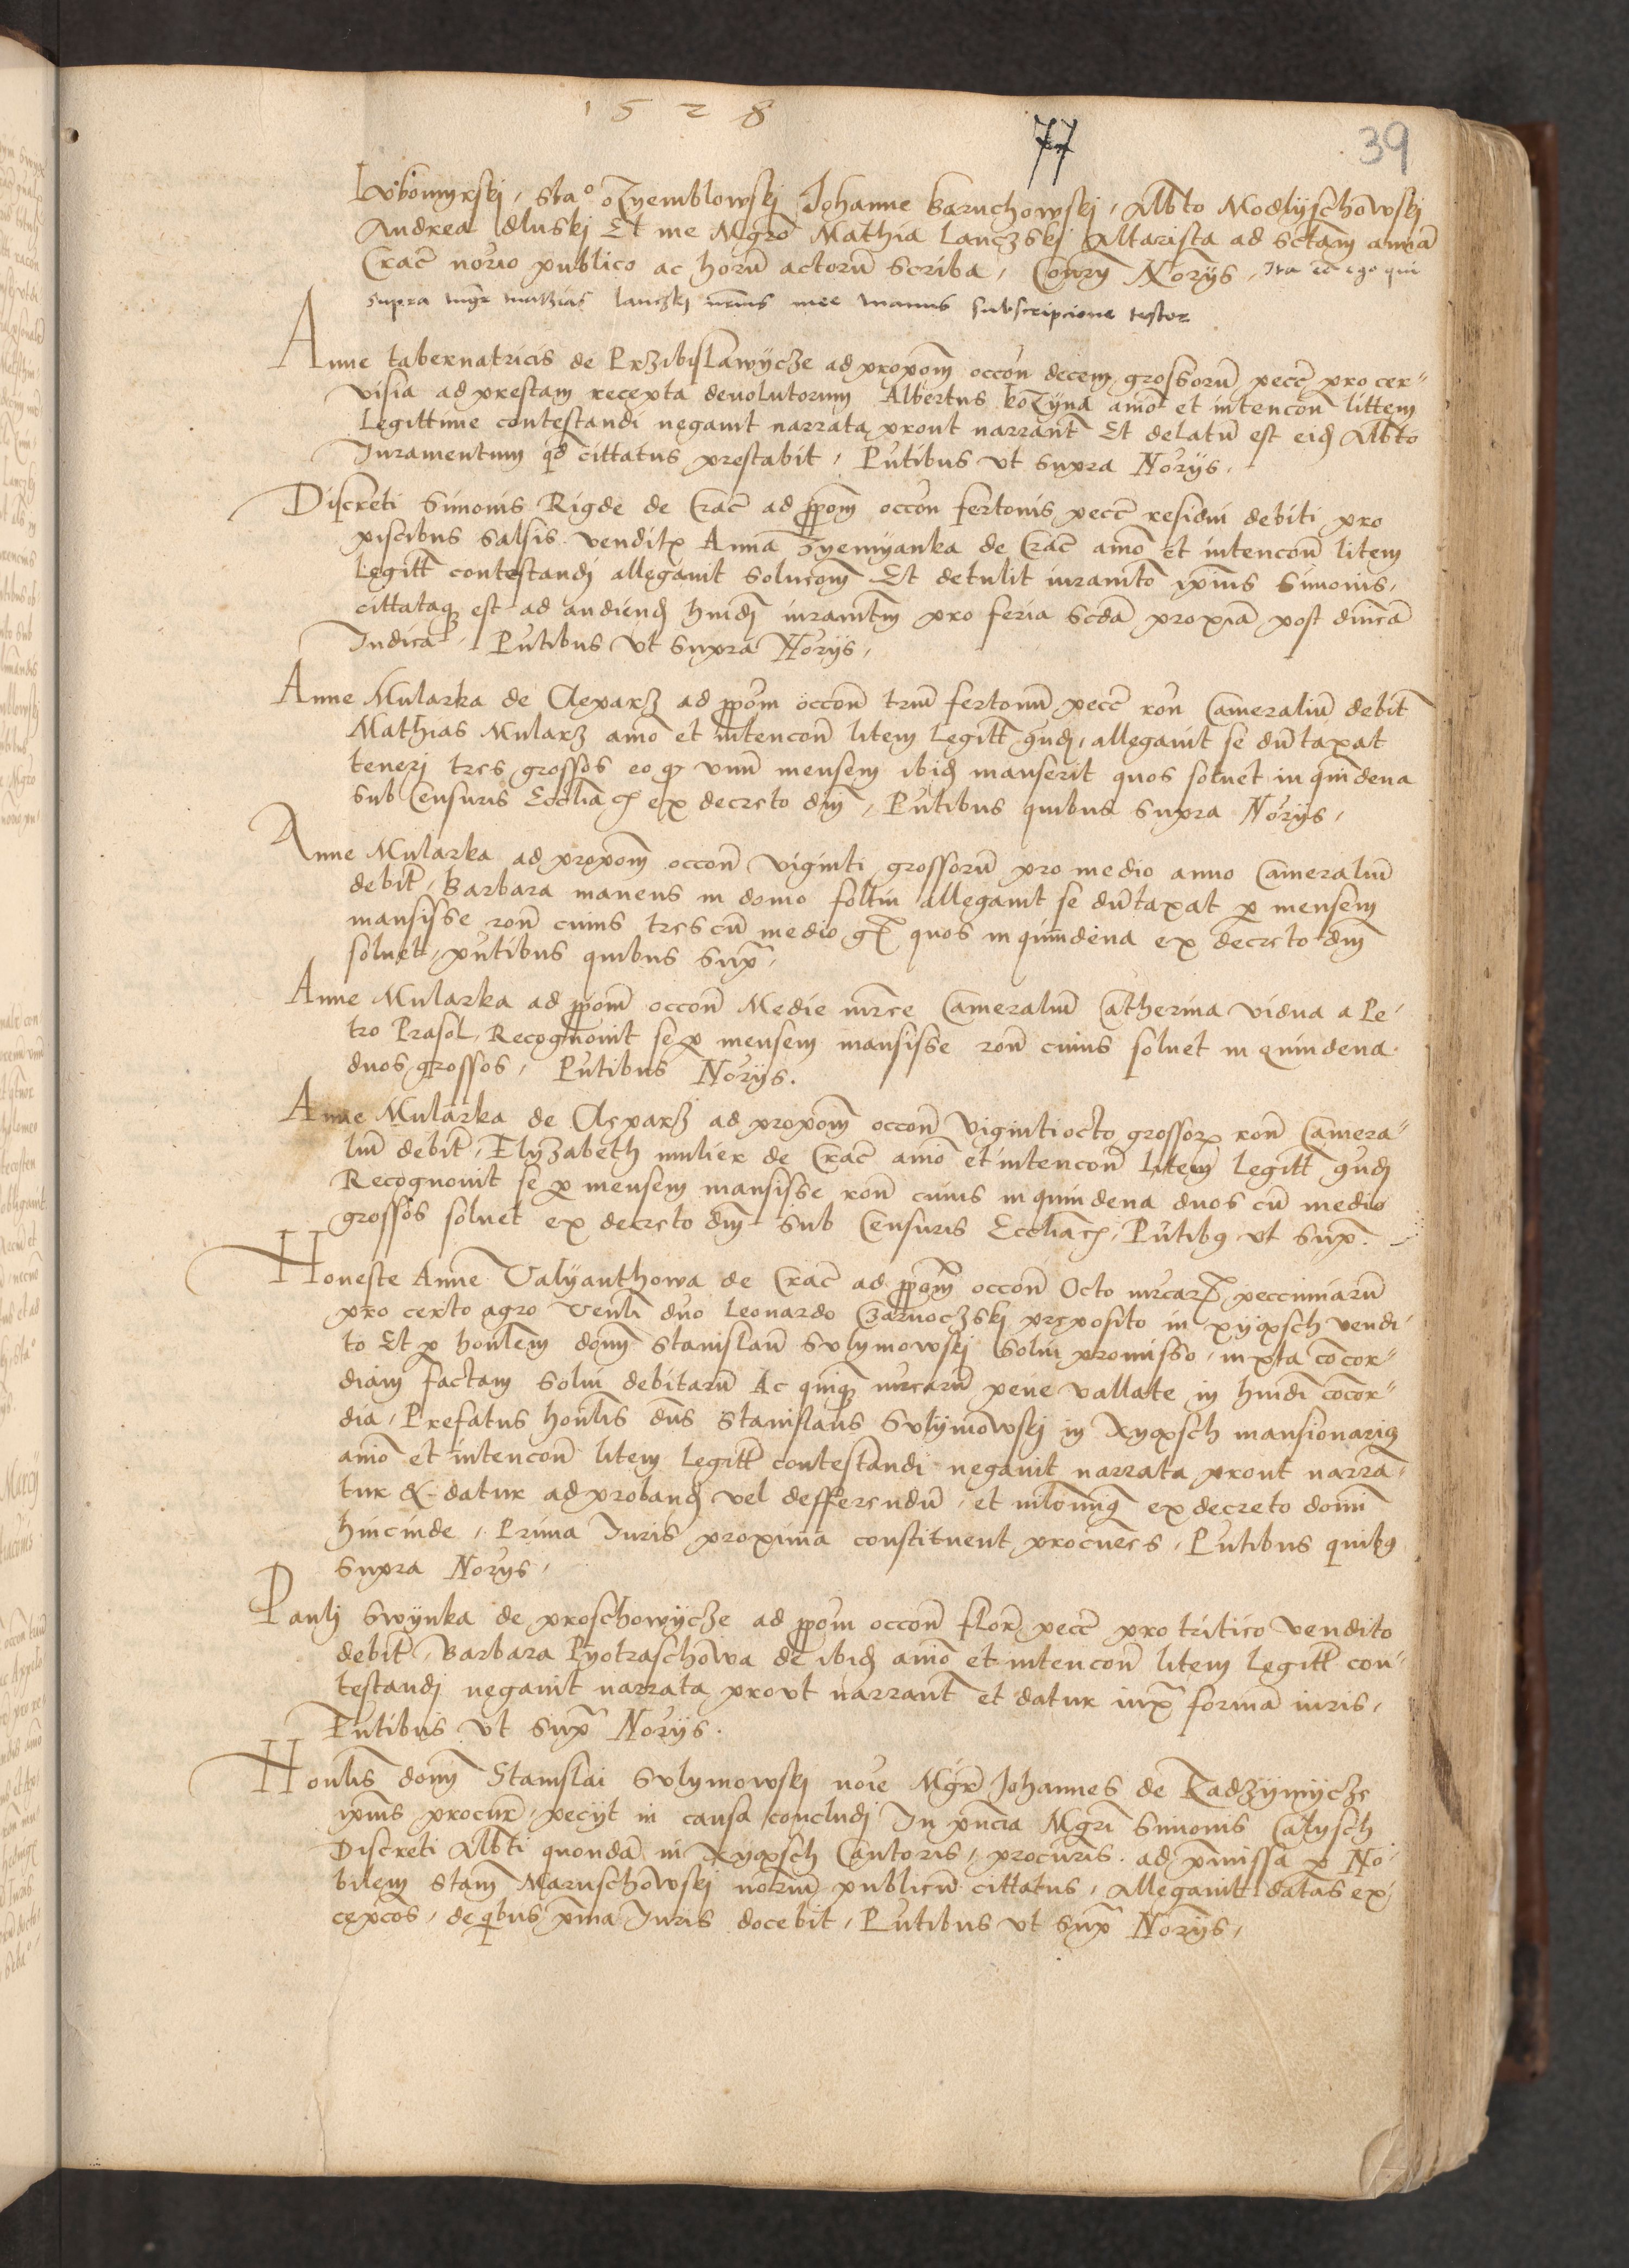 1528
77
39
Lubomyrskj, Sta° oZyemblowskj Johanne Baruchowskj, Albto Modlyschowskj
Andrea dluskj Et me Mgro Mathia Lanczskj Altarista ad Sctam annā
Crac norio publico ac horū actorū Scriba, Conry Norijs, Ita est ego qui
supra mgr mathias lanczkj mee manus subscripcione testor
Anne tabernatricis de Przibislawycze ad propom occon decem grossorū pecc pro cer"
visia ad prestam recepta deuolutorum Albertus koZyna amo et intencon littem
Legittime contestandi negauit narrata prout narrant Et delatū est eid Albto
Juramentum qd cittatus prestabit, Pntibus vt supra Norijs,
Discreti Simonis Rigde de Crac ad ppom occon fertonis pecc residui debiti pro
piscibus salsis venditis Anna Zyemyanka de Crac amo et intencon litem
Legitt contestandj allegauit solucom Et detulit iuramto ipius Simonis,
cittataq est ad audiend huidj iuramtm pro feria scda proxia post dnicā
Judica, Pntibus vt supra Norijs,
Anne Mularka de Clepars ad ppom occon triū fertonū pecc ron Cameraliū debit
Mathias Mularz amo et intencon litem Legitt gudj, allegauit se dūtaxat
tenerj tres grossos eo q vnū mensem ibid manserit quos soluet in quindena
sub Censuris Eccliac ex decreto dnj, Pntibus quibus supra Norijs,
Anne Mularka ad propom occon viginti grossorū pro medio anno Cameraliū
debit, Barbara manens in domo foltin allegauit se dūtaxat p mensem
mansisse ron cuius tres cū medio gr quos in quindena ex decreto dnj
soluet, pntibus quibus supr,
Anne Mularka ad ppom occon Medie mrce Cameraliū Catherina vidua a Pe"
tro Prasol, Recognouit se p mensem mansisse ron cuius soluet in quindena
duos grossos, Pntibus Norijs.
Anne Mularka de Clepars ad propom occon Vigintiocto grossor ron Camera"
liū debit, Elyzabeth mulier de Crac amo et intencon Litem Legitt gudj
Recognouit se p mensem mansisse ron cuius in quindena duos cū medio
grossos soluet ex decreto dnj sub Censuris Eccliac, Pntibus vt supr.
Honeste Anne Valyanthowa de Crac ad ppom occon Octo mrcar pecuniarū
pro certo agro Venli dno Leonardo Czarnoczskj preposito in xyqsch vendi"
to Et p honlem donm Stanislaū Sulymowskj Solui promisso, iuxta cocor"
diam factam Solui debitarū Ac quinq mrcarū pene vallate in huidi cocor"
dia, Prefatus honlis dns Stanislaus Sulymowskj in Xyqsch mansionarius
amo et intencon litem Legitt contestandi negauit narrata prout narra"
tur & datur ad proband vel defferendū, et nilominq ex decreto domi
hincinde, Prima Juris proxima constituent procures, Pntibus quibus
supra Norijs,
Paulj Swynka de proschowycze ad ppom occon flor pecc pro tritico vendito
debit, Barbara Pyotraschowa de ibid amo et intencon litem Legitt con"
testandj negauit narrata provt narrant et datur iux forma iuris,
Pntibus vt supr Norijs.
Honlis donj Stanislai Sulymowskj noie Mgr Johannes de Radzymycze
ipius procur, peijt in causa concludj In pncia Mgri Simonis Calysch
Discreti Albti quondā in Xyqsch Cantoris, procuris. ad pmissa p No"
bilem Stam Maruschowskj noriū publicū cittatus, allegauit datas ex"
cepcos, de qbus pma Juris docebit, Pntibus vt supr Norijs,